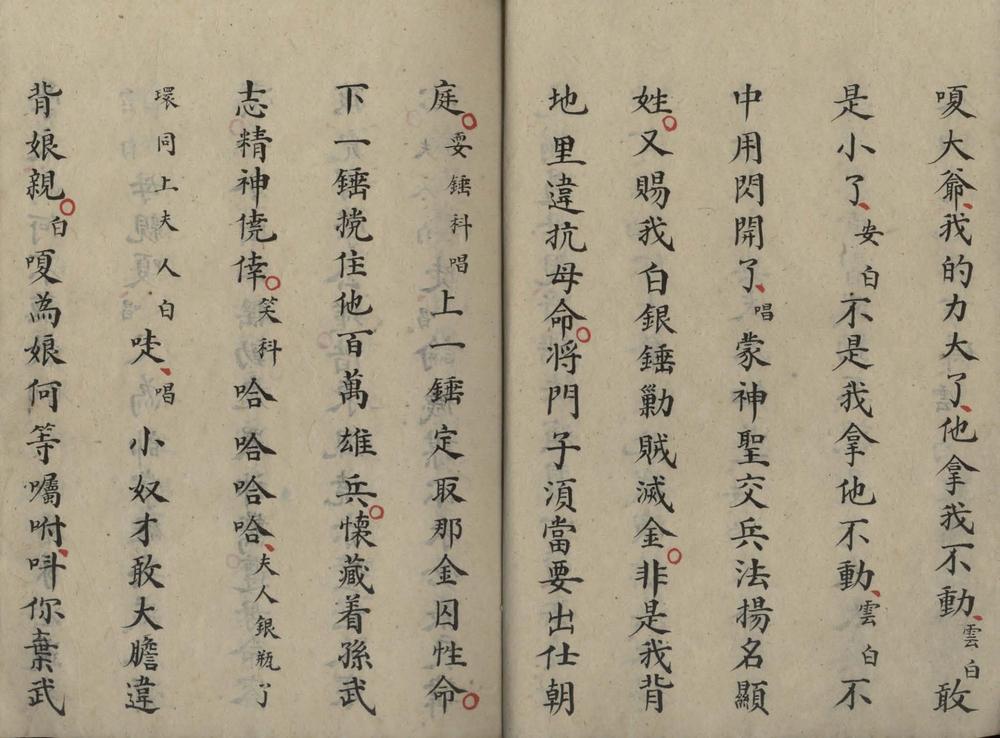 嗄大爺我的力大了他拿我不動雲白敢
是小了安白不是我拿他不動雲白不
中用閃開了唱蒙神聖交兵法揚名顯
姓又賜我白銀錘勦賊滅金非是我背
地里違抗母命將門子須當要出仕朝
庭耍錘科唱上一錘定取那金囚性命
下一錘攩住他百萬雄兵懷藏着孫武
志精神僥倖笑科哈哈哈哈夫人銀瓶丫
環同上夫人白唗唱小奴才敢大膽違
背娘親白嗄為娘何等囑咐呌你棄武